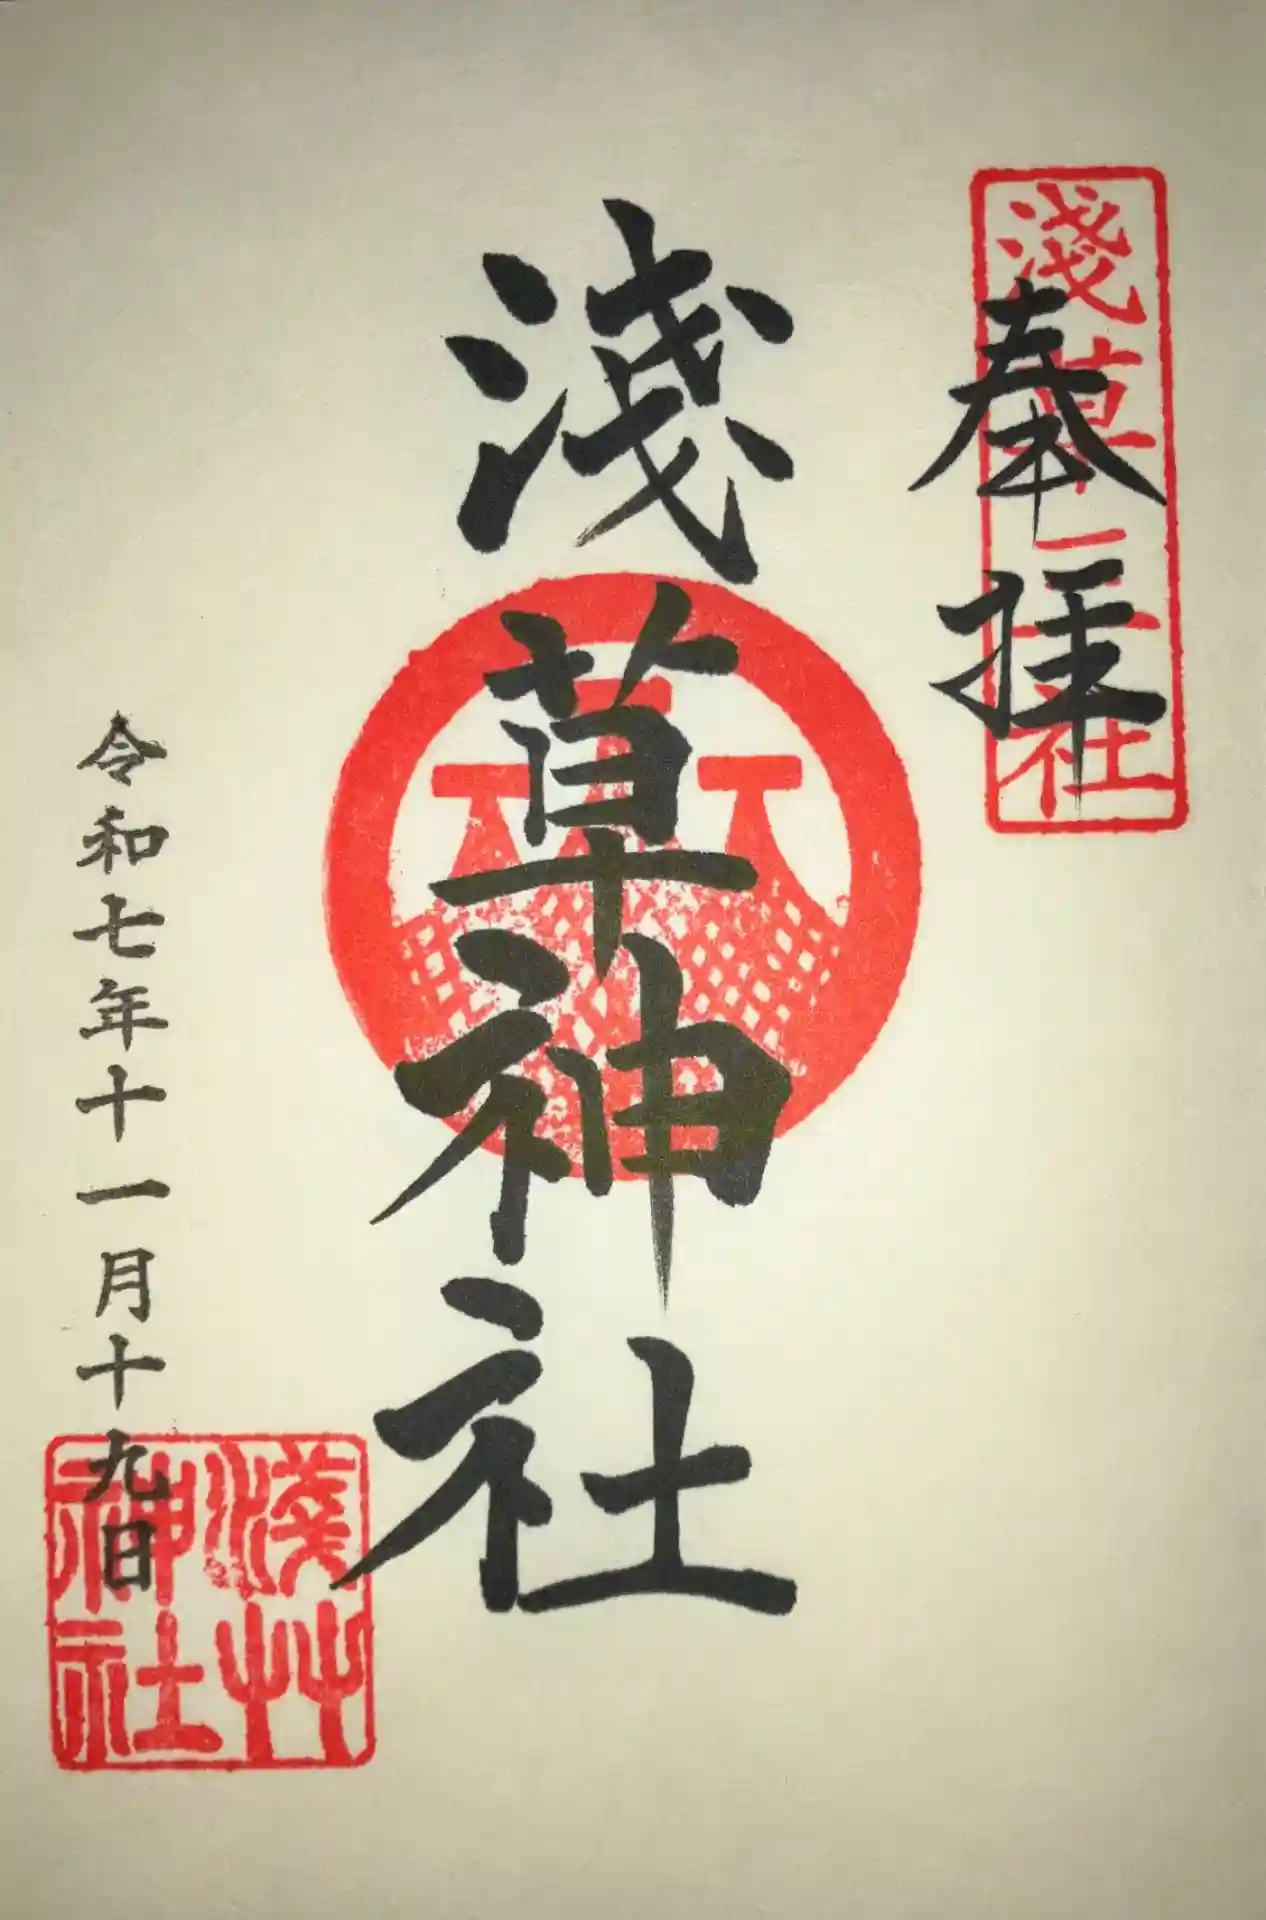 淺草三社
奉拝
浅草神社
令和七年十一月十九日
淺艸
神社